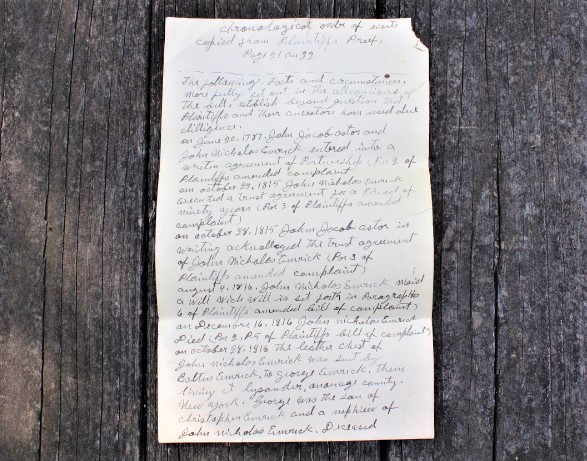 Chronological order of events
copied from Plaintiffs Preef,
Page 21 an 22
The following. Facts and circumstances.
more fully set out in the allegations of
the bill. Estblish beyond question that
Plaintiffs and their ancestors have used due
dilligence.
on June 20. 1787. John Jacob astor and
John Nicholas Emrick entered into a
writen agreement of Partnership (Par 2 of
Plaintiffs amended complaint
on october 27. 1815 John Nicholas Emrick
executed a trust agreement for a Period of
ninety years (Par 3 of Plaintiffs amended
complaint)
on october 28. 1815 John Jacob astor in
writing acknolleged the trust agreement
of John Nicholas Emrick (Par 3 of
Plaintiffs amended complaint)
august 4. 1816. John Nicholas Emrick maid
a Will Wich Will is set forth in Paragraphs
6 of Plaintiffs amended bill of complaint)
on Decembre 16. 1816 John nicholas Emrick
Died (Par 2. P.5 of Plaintiffs bill of complaint)
on october 28. 1816 the leather chest of
John nicholas Emrick was sent by
Baltus Emrick, to George Emrick, then
living at Lysander, county.
New york. George was the son of
christopher Emrick and a nephiew of
John nicholas Emrick. Deceased